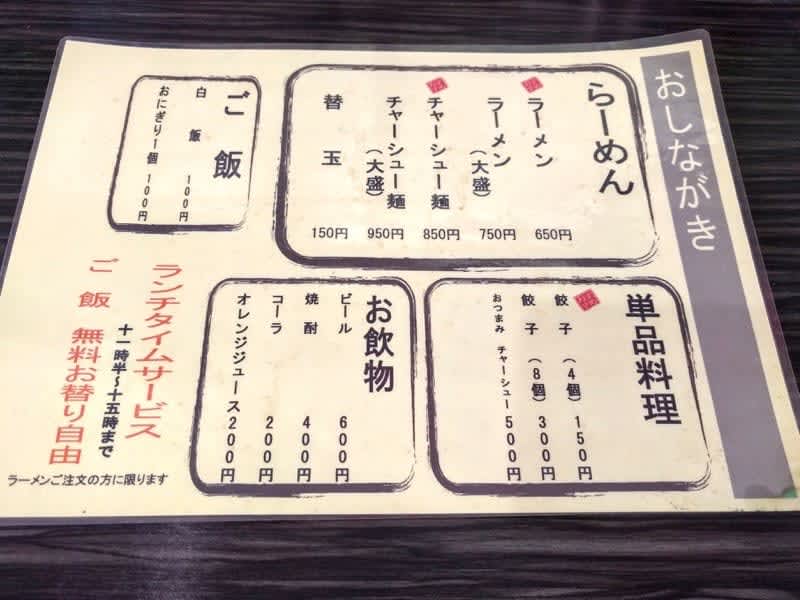 おしながき
らーめん
ラーメン 650円
ラーメン（大盛） 750円
チャーシュー麺 850円
チャーシュー麺（大盛） 950円
替玉 150円
ご飯
白飯 100円
おにぎり1個 100円
単品料理
餃子（4個）150円
餃子（8個）300円
おつまみ チャーシュー 500円
お飲物
ビール 600円
焼酎 400円
コーラ 200円
オレンジジュース 200円
ランチタイムサービス
十一時半～十五時まで
ご飯 無料お替り自由
ラーメンご注文の方に限ります